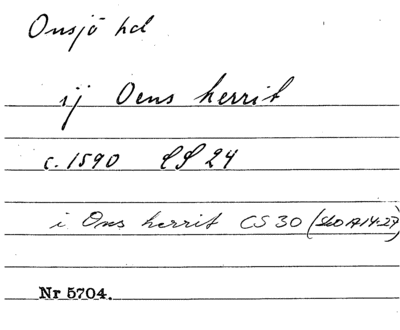 Onsjö hd
ij Oens herrit
c. 1590 CS 24
i Ons herrit CS 30
Nr 5704.